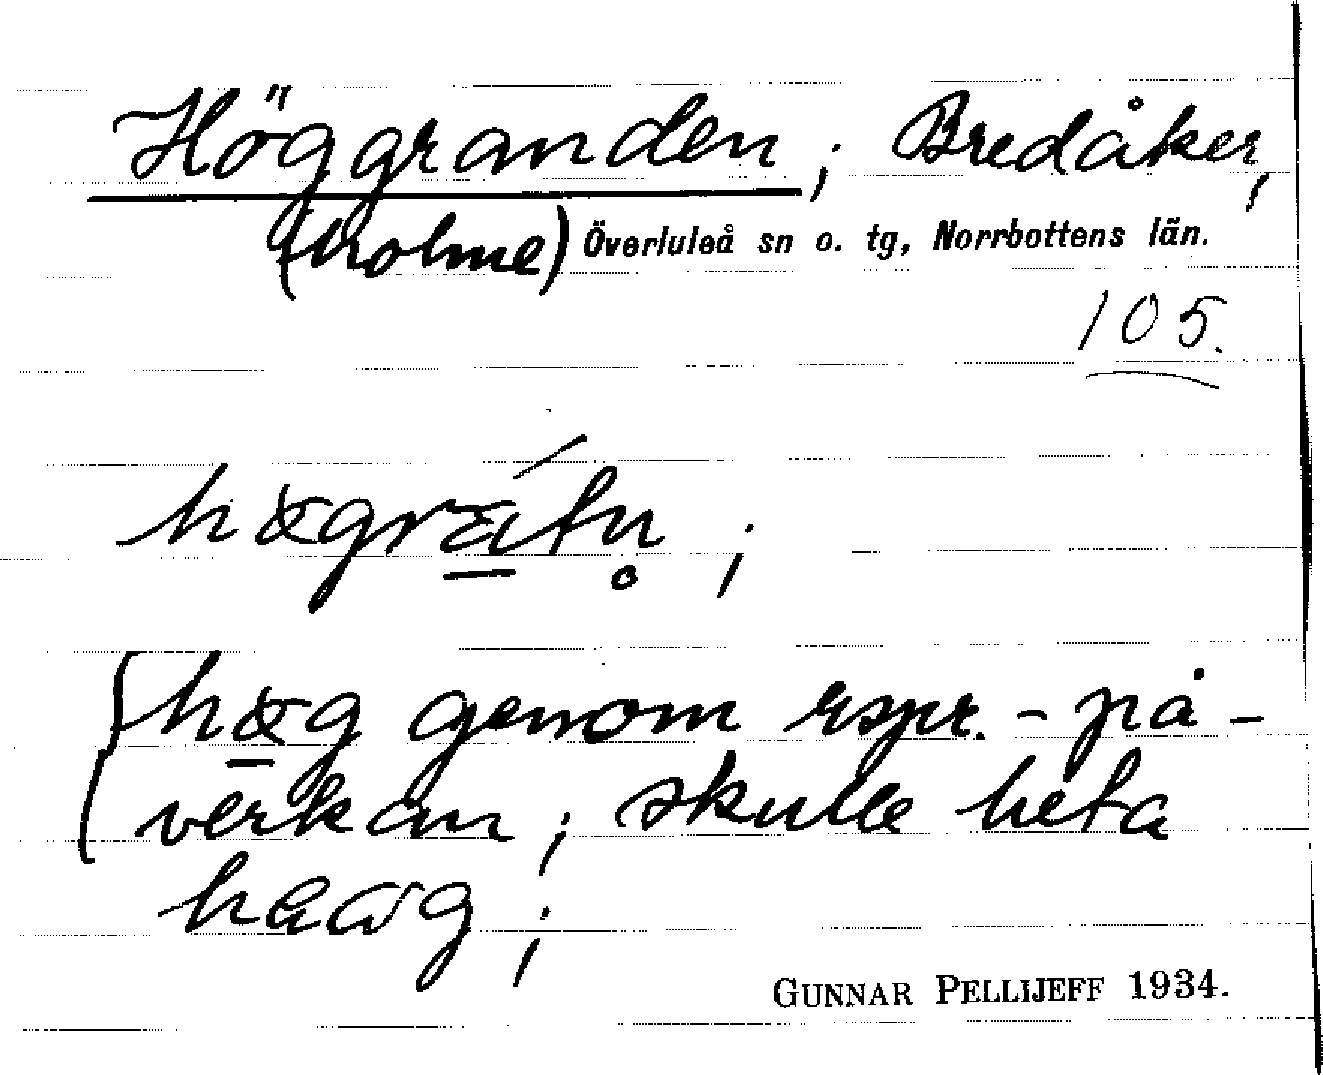 Höggranden; Bredåker,
(holme) Överluleå sn o. tg, Norrbottens län.
105.
{høg genom rspr.-på-
verkan; skulle heta
GUNNAR PELLIJEFF 1934.